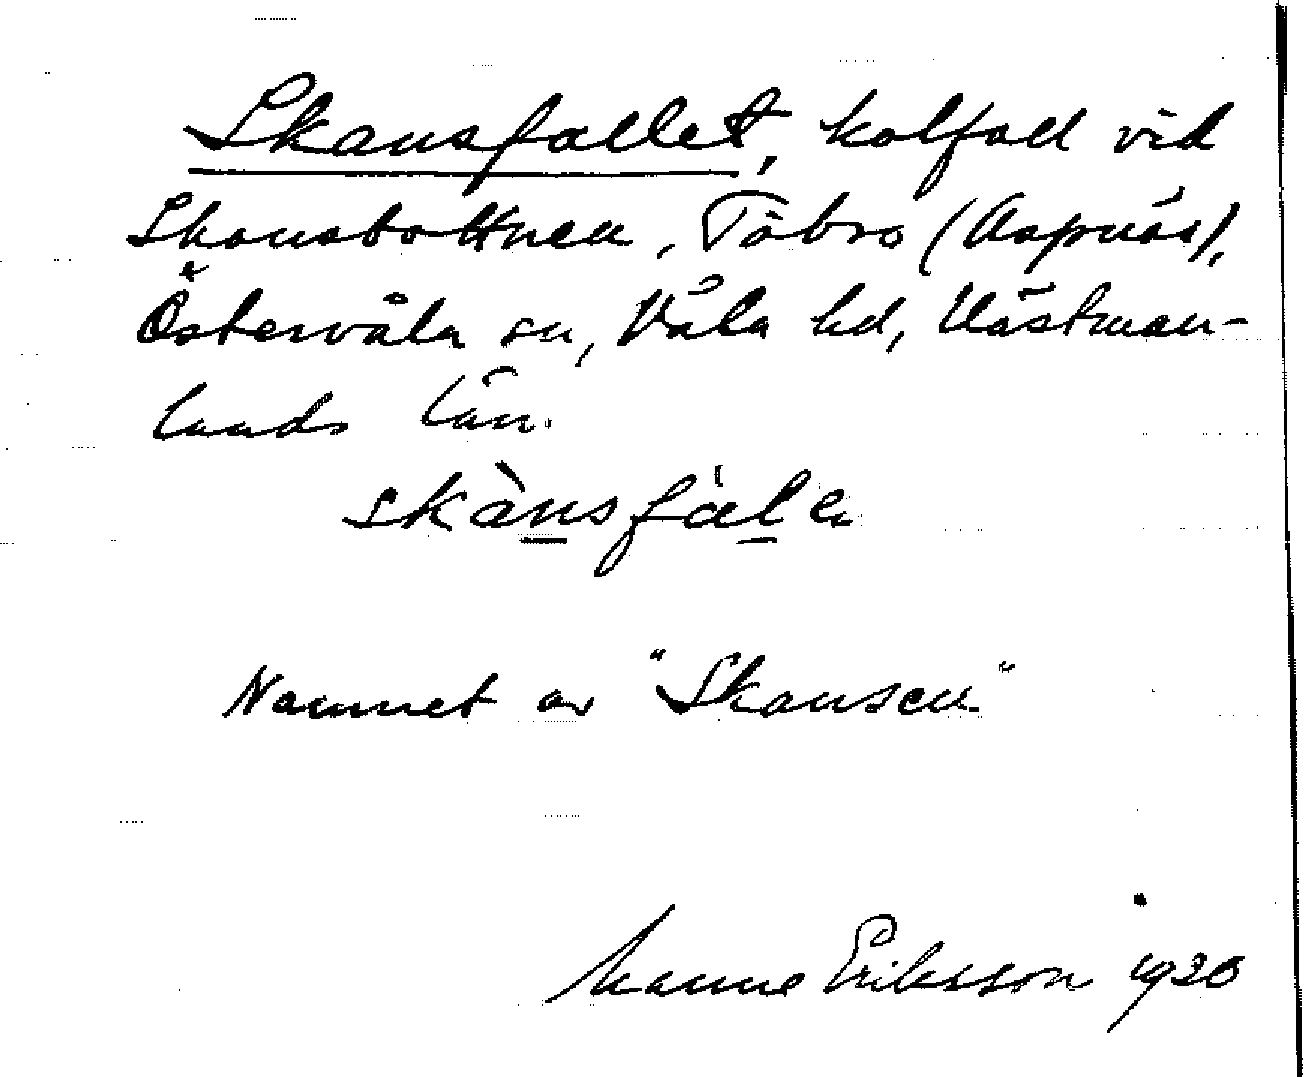 Skansfallet, kolfall vid
Skansbottnen, Töbro (Aspnäs),
Östervåla sn, Våla hd, Västman-
lands län.
skànsfál
Namnet av "Skansen"
Manne Eriksson